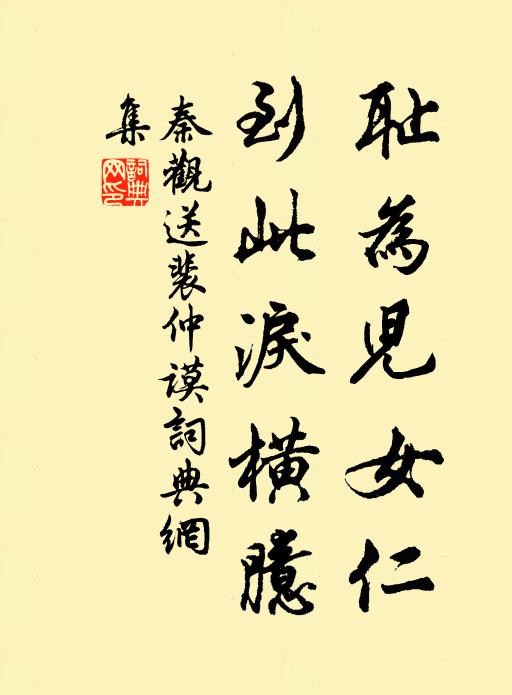 耻為兒女仁
到此淚橫臆
秦觀送裴仲謨詞典網
集
詞典網印